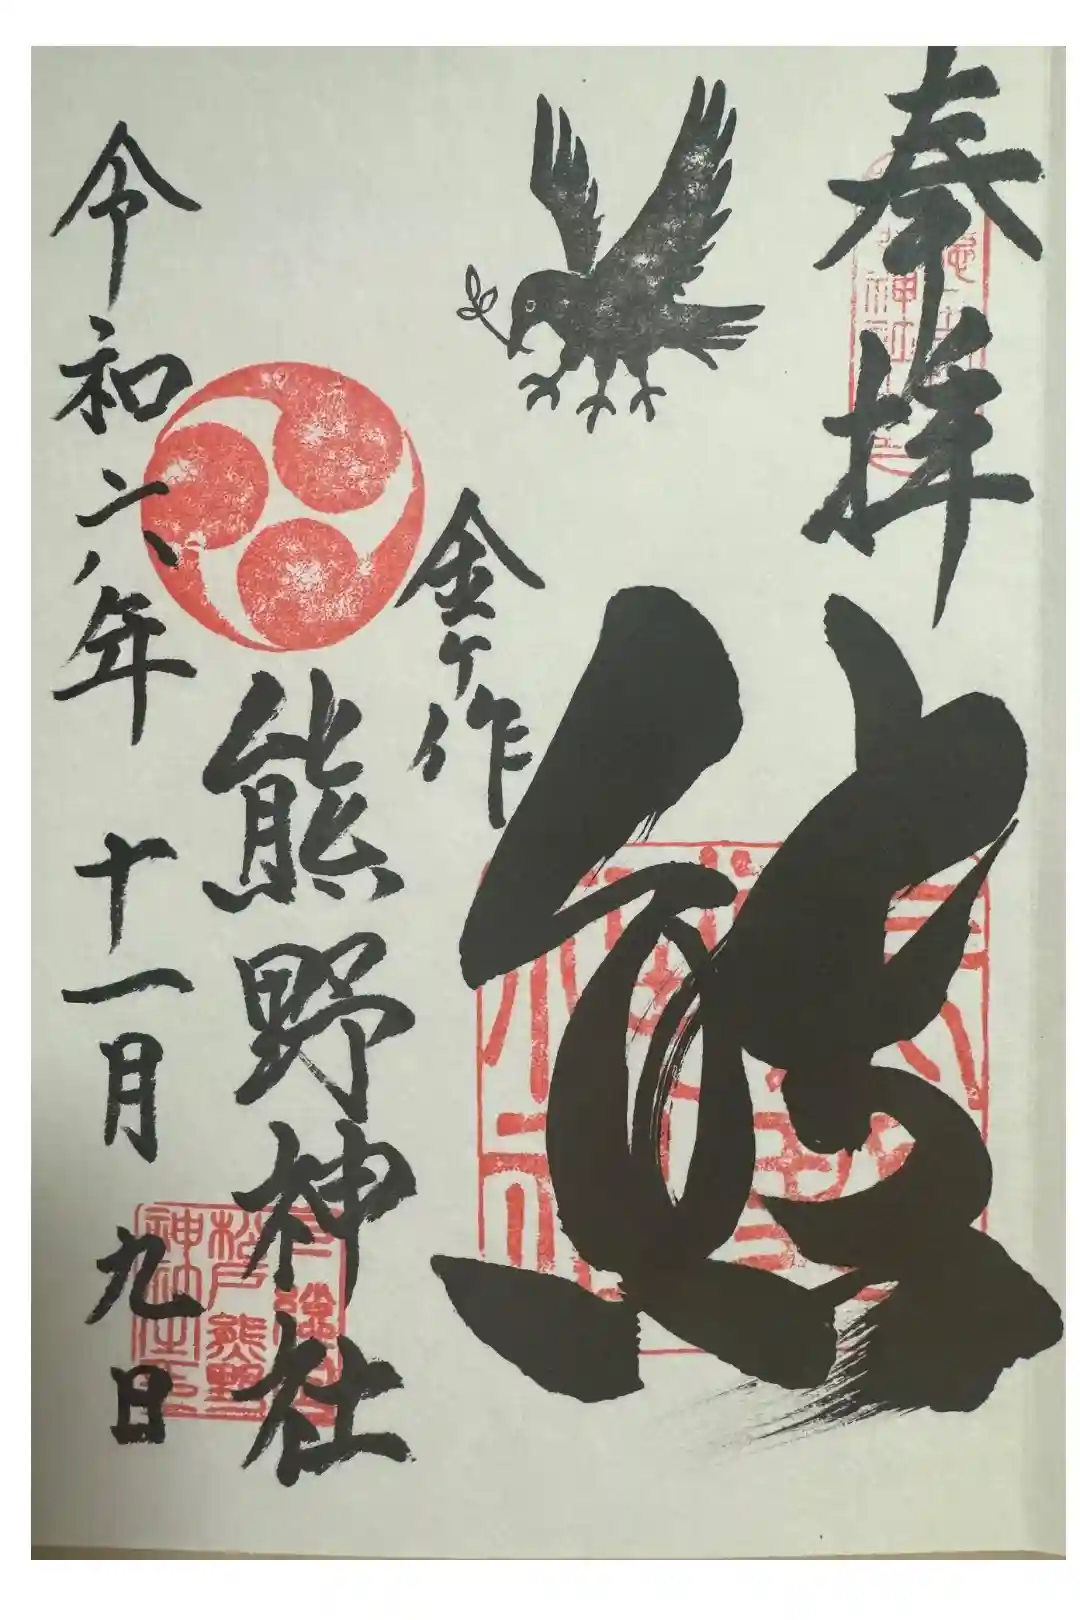 奉拝
熊
金ヶ作
熊野神社
令和六年 十一月 九日
松戸熊野